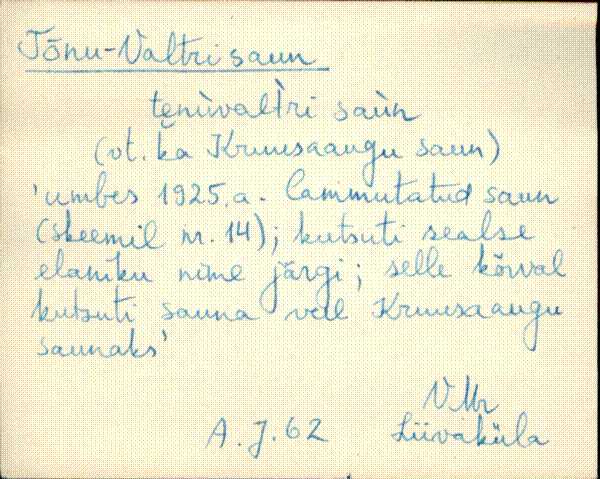 Tõnu-Valtri saun
te̮nìvaltri saùn
(vt. ka Kruusaaugu saun)
'umbes 1925.a. lammutatud saun
(skeemil nr. 14); kutsuti sealse
elaniku nime järgi; selle kõrval
kutsuti sauna veel Kruusaaugu
saunaks'
VMr
A. J. 62 Liivaküla